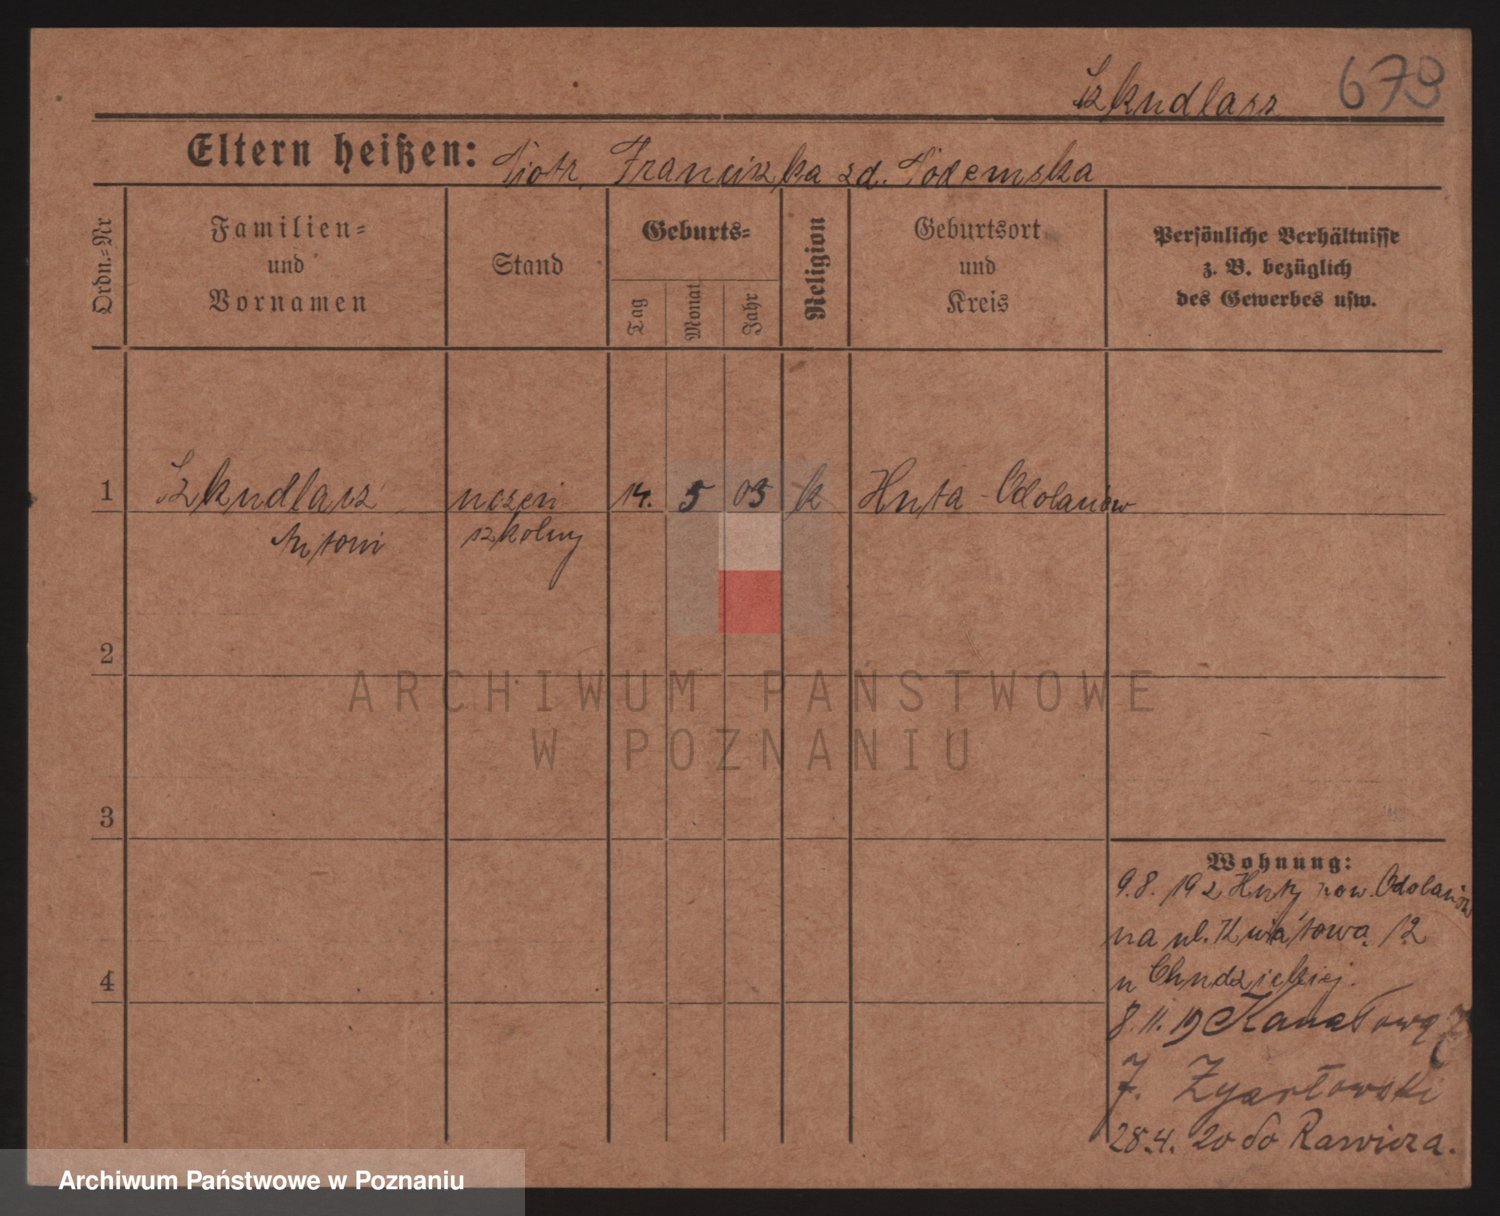 Szkudlarz 679
Eltern heißen: Piotr, Franciszka zd.
Ordn.-Nr
Familien-
und
Vornamen
Stand
Geburts-
Tag
Monat
Jahr
Religion
Geburtsort
und
Kreis
Persönliche Verhältnisse
z. B. bezüglich
des Gewerbes usw.
1 Szkudlarz uczeń 14. 5 05 k Huta - Odolanów
Antoni szkolny
2
3
4
Wohnung:
9.8. 19 z Huty pow. Odolanów
na ul. Kwiatowa 12
u
8.11. 19 Kanałowa
J.
28.4. 20 do Rawicza.
ARCHIWUM PAŃSTWOWE
W POZNANIU
Archiwum Państwowe w Poznaniu